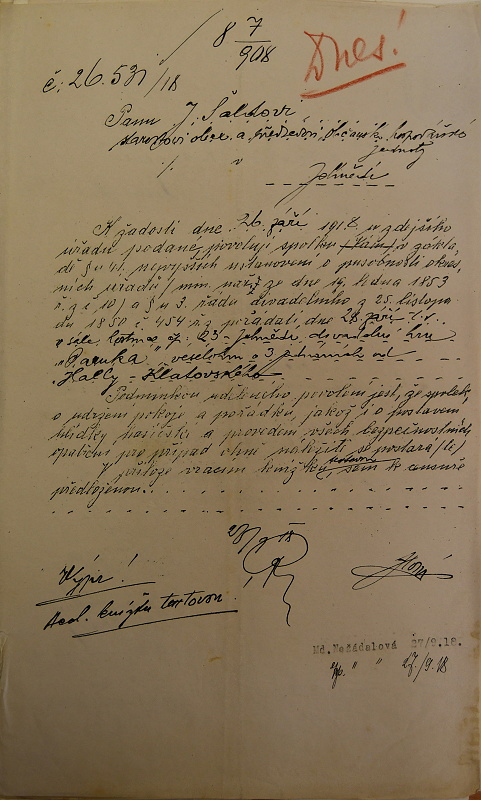 8 7/908
Dnes!
č: 26.531/18
Panu J.
starostovi obce a předsedovi občansk. hospodářské
jednoty
v
K žádosti dne 26. září 1918 u zdejšího
úřadu podané, povoluji spolku v zákla
dě § u 41. nejvyšších ustanovení o působnosti okres
ních úřadů / mm. naříz. ze dne 19. ledna 1853
ř. z. č 10 / a § u 3. řádu divadelního z 25. listopa
du 1850 č 454 ř. z. pořádati dne 28. září t. r.
v sále čp. 23 divadelní hru
"Paruka" veselohru o 3 jednáních od
Haldy - Klatovského
Podmínkou uděleného povolení jest, že spolek
o udržení pokoje a pořádku, jakož i o postavení
hlídky hasičské a provedení všech bezpečnostních
opatření pro případ ohně náležitě se postará /te/
V příloze vracím knížku sem k censuře
předloženou.
27/9 18
Výpr!
textovou.
Md. Nežádalová 27/9.18.
" " 27./9.18